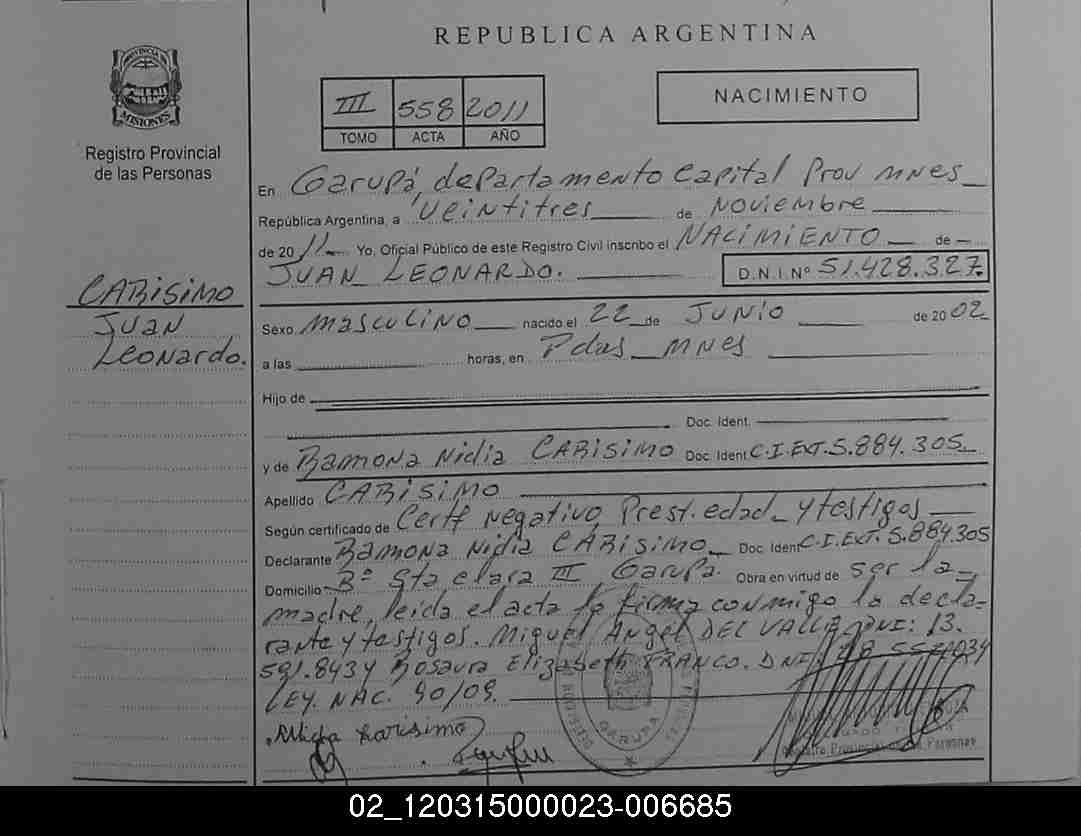 REPUBLICA ARGENTINA
PROVINCIA DE
MISIONES
Registro Provincial
de las Personas
III 558 2011
TOMO ACTA AÑO
NACIMIENTO
En Garupá, departamento Capital Prov MNES
República Argentina, a Veintitres de Noviembre
de 2011 Yo, Oficial Público de este Registro Civil inscribo el NACIMIENTO de
JUAN LEONARDO. D.N.I.Nº 51.428.327.
CARISIMO
Juan
Leonardo.
Sexo masculino nacido el 22 de Junio de 2002
a las horas, en Pdas MNES
Hijo de
Doc. Ident.
y de Ramona Nidia CARISIMO Doc. Ident C.I.EXT.5.884.305
Apellido CARISIMO
Según certificado de Certf Negativo, Prest. edad y testigos
Declarante Ramona Nidia CARISIMO Doc. Ident C.I.EXT. 5.884.305
Domicilio Bº Sta clara III Garupa. Obra en virtud de ser la
madre, leida el acta la firma conmigo la decla-
rante y testigos. Miguel Angel DEL VALLE DNI: 13.
591.843 y Rosaura Elizabeth FRANCO. DNI.
LEY. NAC. 90/09.
Nidia Carisimo
GARUPA
Registro Provincial de las Personas
02_120315000023-006685